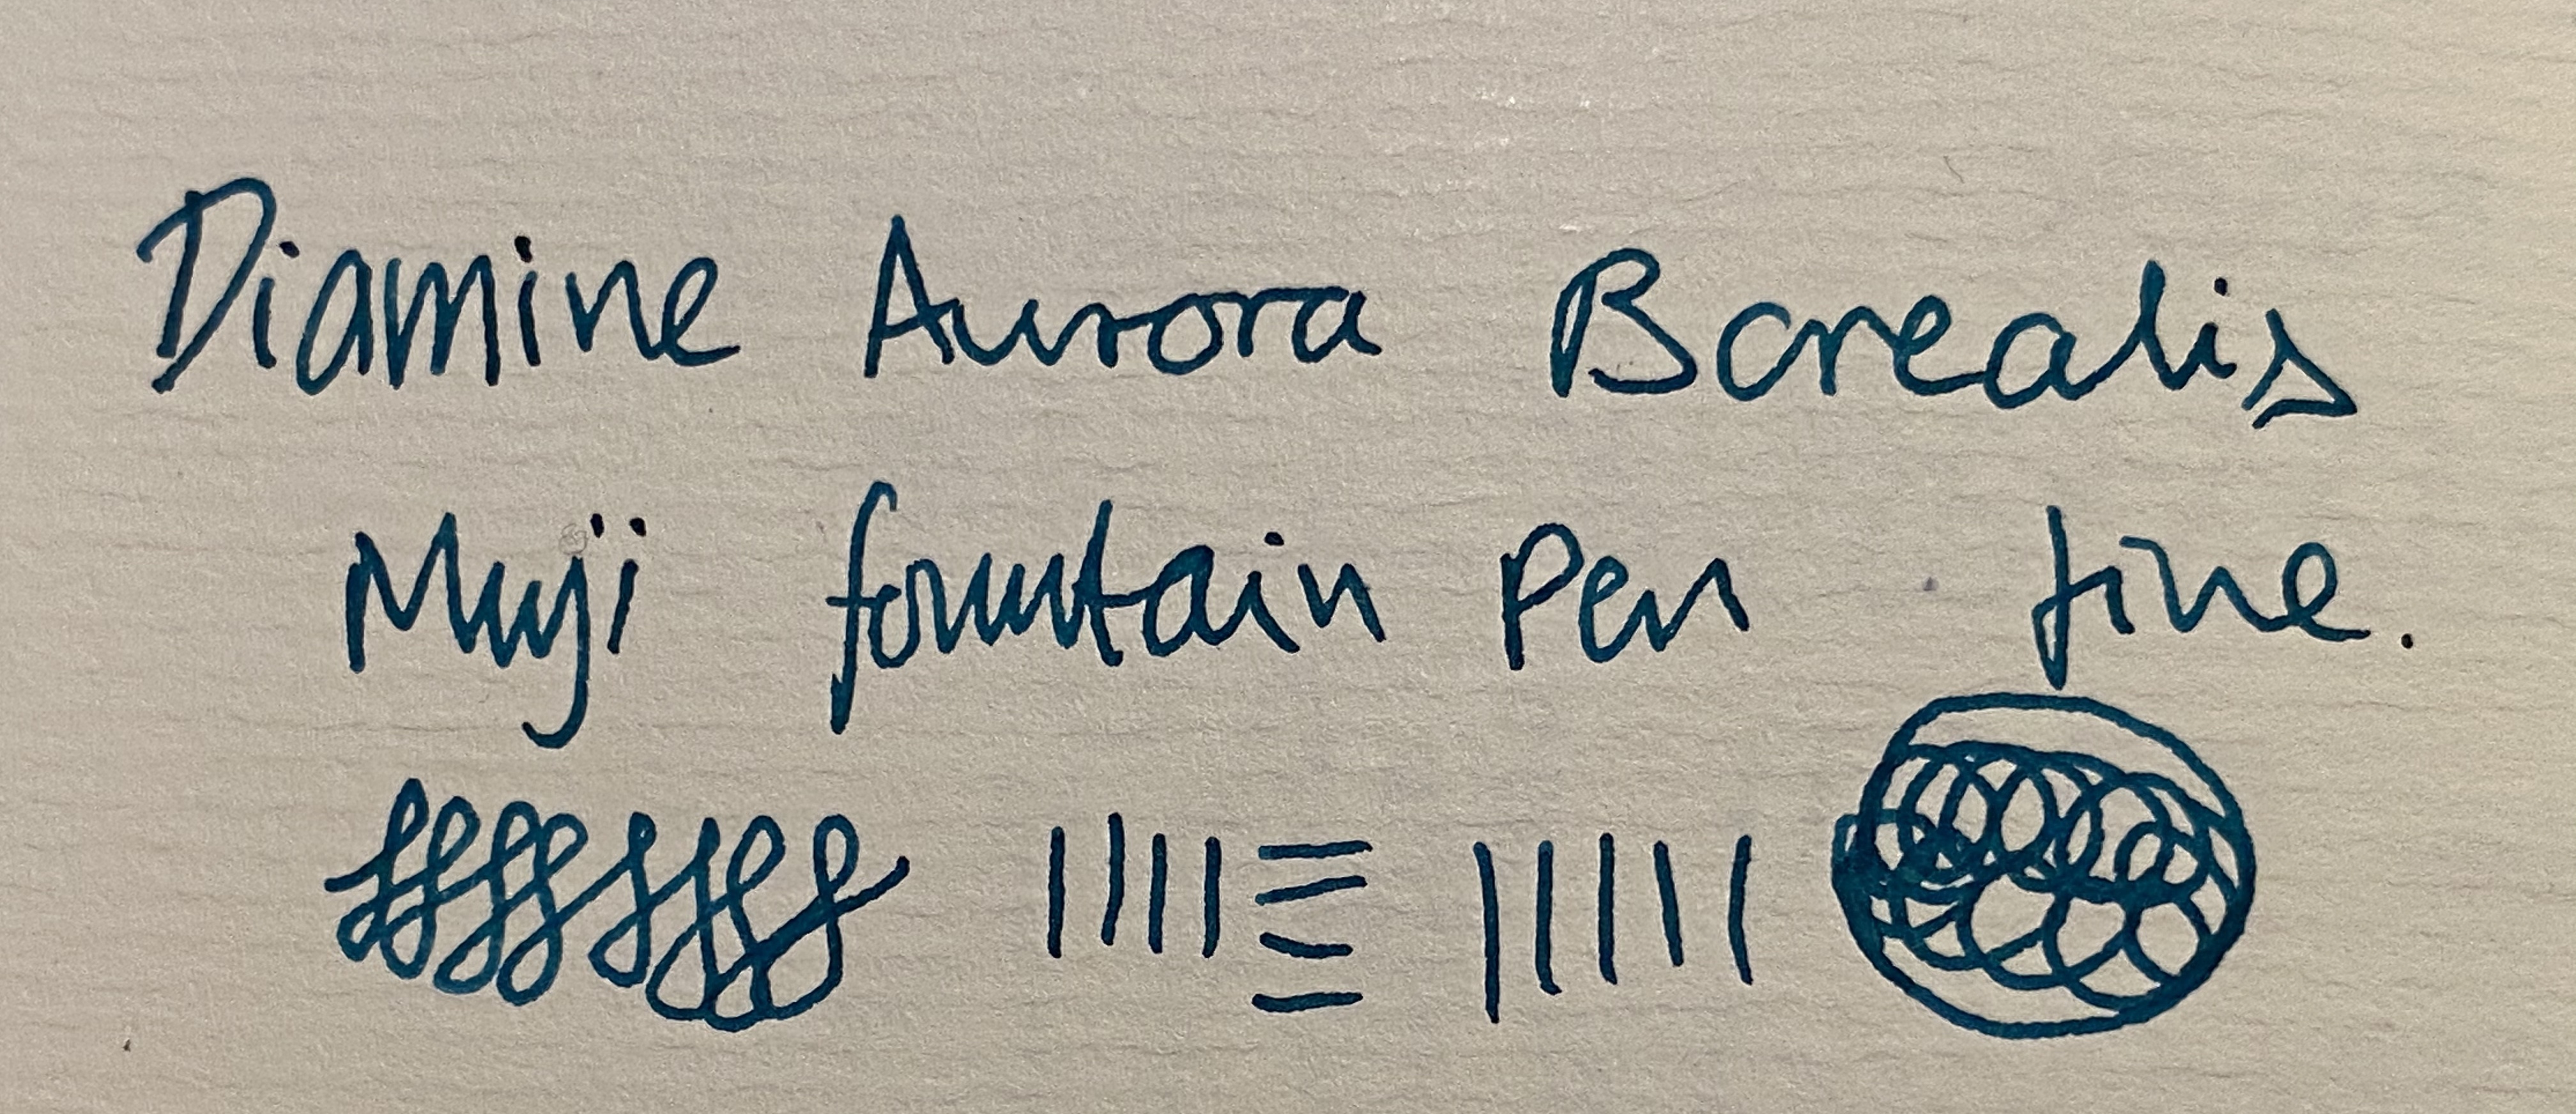 Diamine Aurora Borealis
Muji fountain Pen fine.